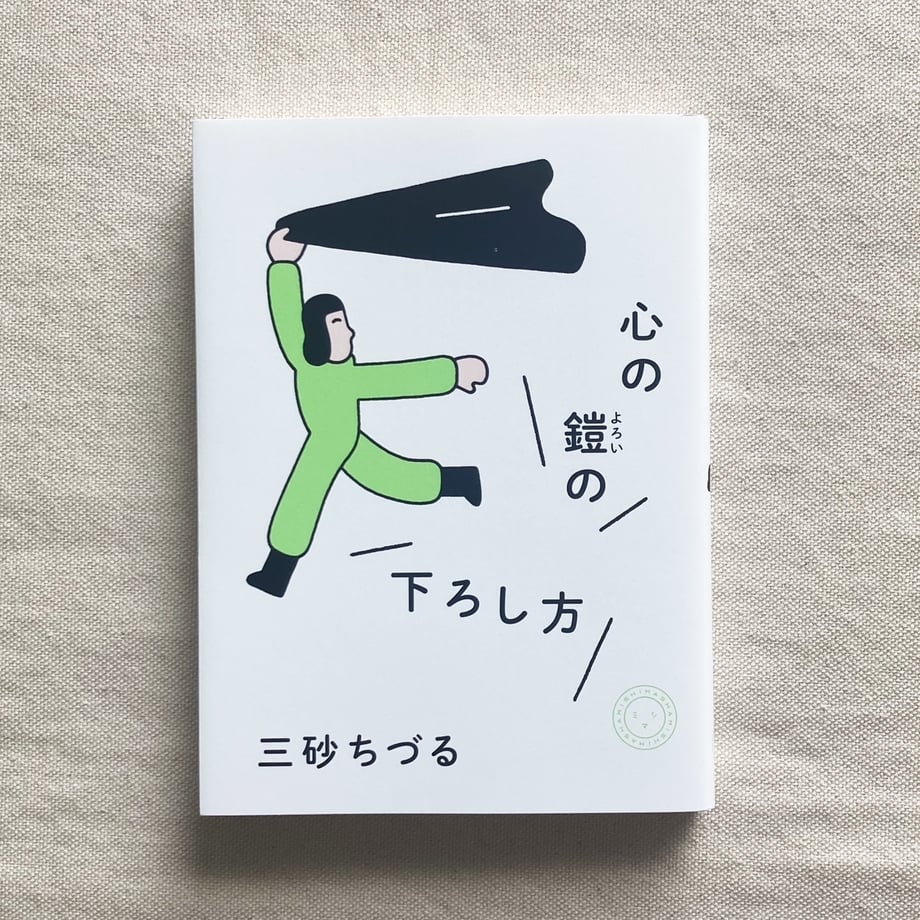 心の
鎧の
よろい
下ろし方
三砂ちづる
MISHIMASHA
ミ
シ
マ